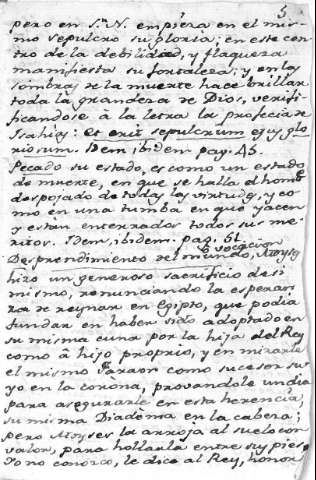 5.
pero en S.r N. empieza en el mis-
mo sepulcro su gloria; en este cen-
tro de la debilidad, y flaqueza
manifiesta su fortaleza; y en las
sombras de la muerte hace brillar
toda la grandeza de Dios, verifi-
ficandose à la letra la profecia de
Isahias: et erit sepulcrum ejus glo
riosum. Idem ibidem. pag. 45.
Pecado su estado, es como un estado
de muerte, en que se halla el homb.e
despojado de todas las virtudes, y co
mo en una tumba en que yacen
y estan enterrados todos sus me-
ritos. Idem, ibidem. pag. 61.
Desprendimiento del mundo, vocacion Moyses
hizo un generoso sacrificio de si
mismo, renunciando la esperan-
za de reynar en Egipto, que podia
fundar en haber sido adoptado en
su misma cuna por la hija del Rey
como à hijo proprio, y en mirarle
el mismo Faraon como sucesor su-
yo en la corona, provandole un dia
para asegurarle en esta herencia,
su misma Diadema en la cabeza;
pero Moyses la arroja al suelo con
valor, para hollarla entre sus pies.
Yo no conozco, le dice al Rey, honor